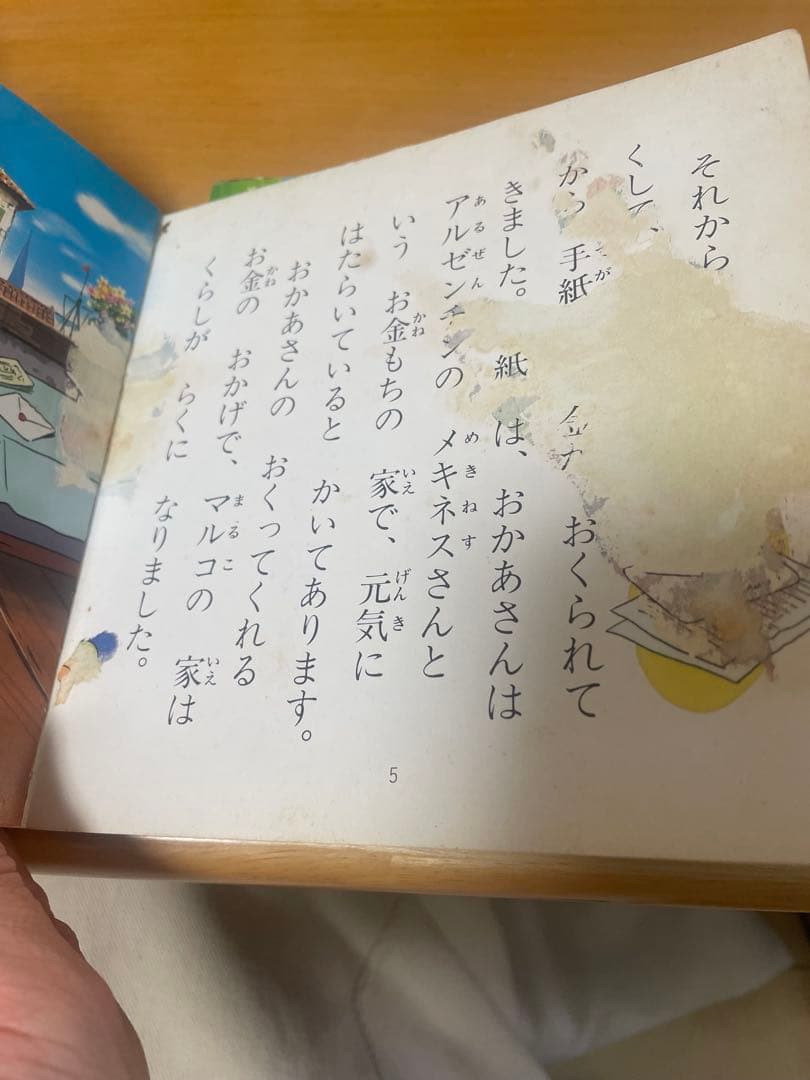 それから
くして、
から 手紙 おくられて
きました。 紙 は、おかあさんは
アルゼンチンの メキネスさんと
いう お金もちの 家で、元気に
はたらいていると かいてあります。
おかあさんの おくってくれる
お金の おかげで、マルコの 家は
くらしが らくに なりました。
5